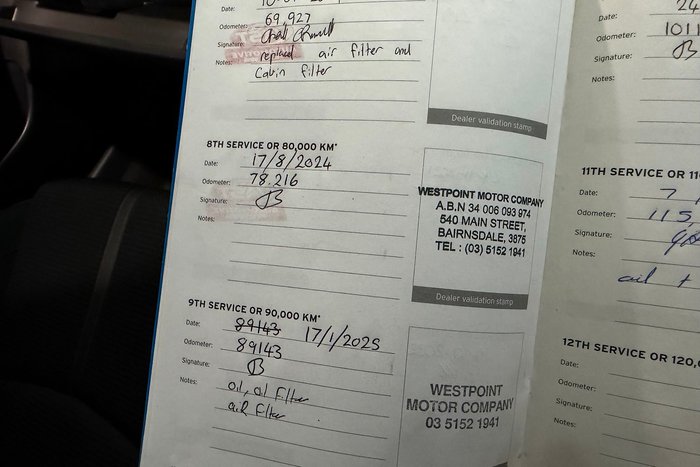 Date:
Odometer: 69,927
Signature:
Notes: replaced air filter and
Cabin filter
Dealer validation stamp
8TH SERVICE OR 80,000 KM*
Date: 17/8/2024
Odometer: 78.216
Signature:
Notes:
WESTPOINT MOTOR COMPANY
A.B.N 34 006 093 974
540 MAIN STREET,
BAIRNSDALE, 3875
TEL : (03) 5152 1941
Dealer validation stamp
9TH SERVICE OR 90,000 KM*
Date: 89143 17/1/2025
Odometer: 89143
Signature:
Notes: oil, oil filter
air filter
WESTPOINT
MOTOR COMPANY
03 5152 1941
Date: 24
Odometer: 1011
Signature:
Notes:
11TH SERVICE OR 11
Date: 7
Odometer: 115,
Signature:
Notes:
oil +
12TH SERVICE OR 120,0
Date:
Odometer:
Signature:
Notes: